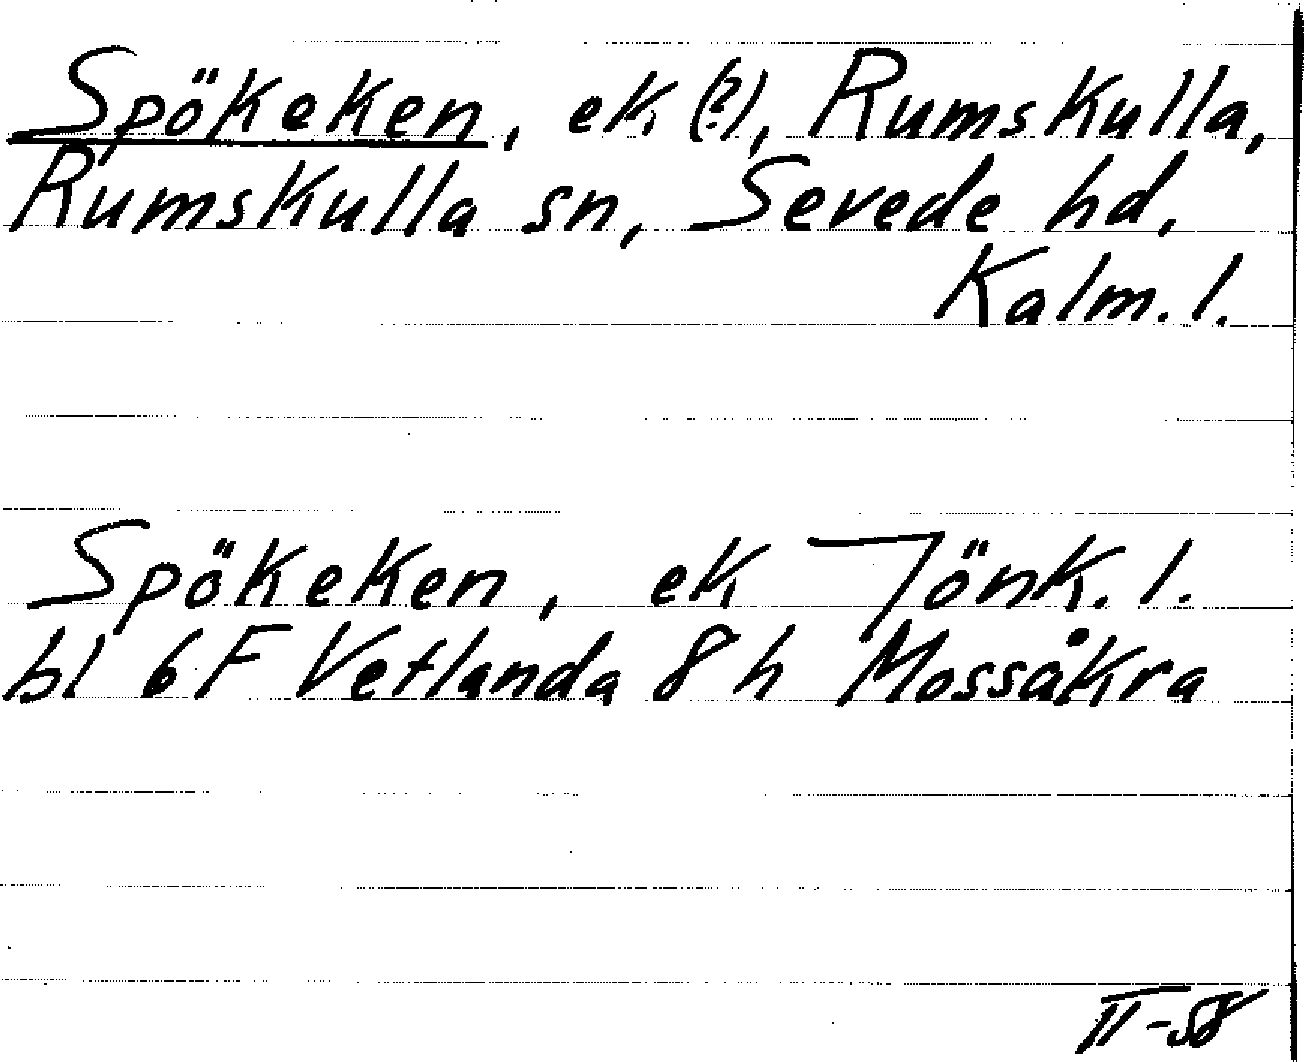 Spökeken, ek (?), Rumskulla,
Rumskulla sn, Sevede hd,
Kalm. l.
Spökeken, ek Jönk. l.
bl 6 F Vetlanda 8 h Mossåkra
II-58